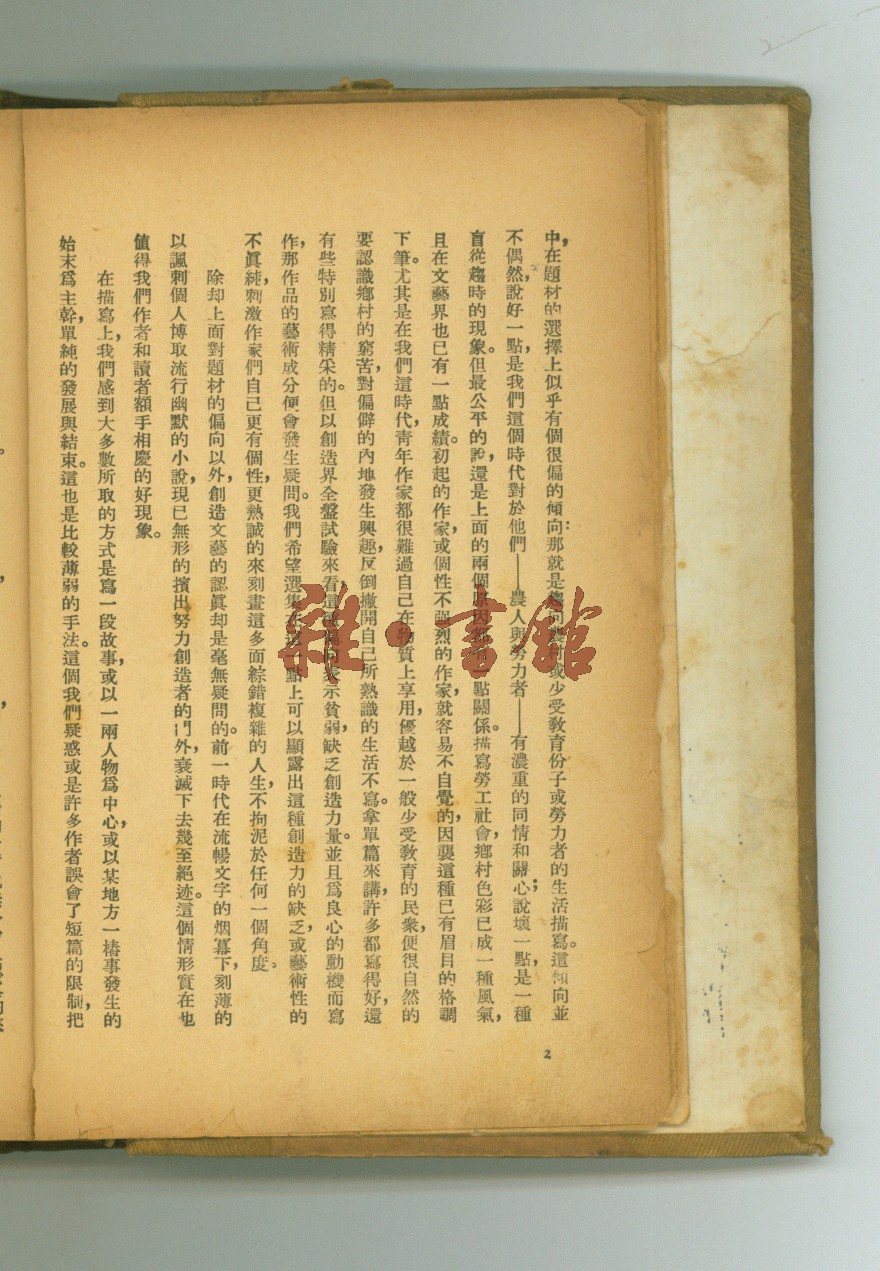 中，在題材的選擇上似乎有個很偏的傾向：那就是趨向農村或少受教育份子或勞力者的生活描寫。這傾向並
不偶然，說好一點，是我們這個時代對於他們——農人與勞力者——有濃重的同情和關心；說壞一點，是一種
盲從趨時的現象。但最公平的說，還是上面的兩個原因都有一點關係。描寫勞工社會，鄉村色彩已成一種風氣，
且在文藝界也已有一點成績。初起的作家，或個性不強烈的作家，就容易不自覺的，因襲這種已有眉目的格調
下筆。尤其是在我們這時代，青年作家都很難過自己在物質上享用，優越於一般少受教育的民衆，便很自然的
要認識鄉村的窮苦，對偏僻的內地發生興趣，反倒撇開自己所熟識的生活不寫。拿單篇來講，許多都寫得好，還
有些特別寫得精采的。但以創造界全盤試驗來看，這種偏向表示貧弱，缺乏創造力量。並且爲良心的動機而寫
作，那作品的藝術成分便會發生疑問。我們希望選集在這一點上可以顯露出這種創造力的缺乏，或藝術性的
不眞純，刺激作家們自己更有個性，更熱誠的來刻畫這多面綜錯複雜的人生，不拘泥於任何一個角度。
除却上面對題材的偏向以外，創造文藝的認眞却是毫無疑問的。前一時代在流暢文字的烟幕下，刻薄的
以諷刺個人博取流行幽默的小說，現已無形的擯出努力創造者的門外，衰滅下去幾至絕迹。這個情形實在也
值得我們作者和讀者額手相慶的好現象。
在描寫上，我們感到大多數所取的方式是寫一段故事，或以一兩人物爲中心，或以某地方一樁事發生的
始末爲主幹，單純的發展與結束。這也是比較薄弱的手法。這個我們疑惑或是許多作者誤會了短篇的限制，把
2
雜·書館